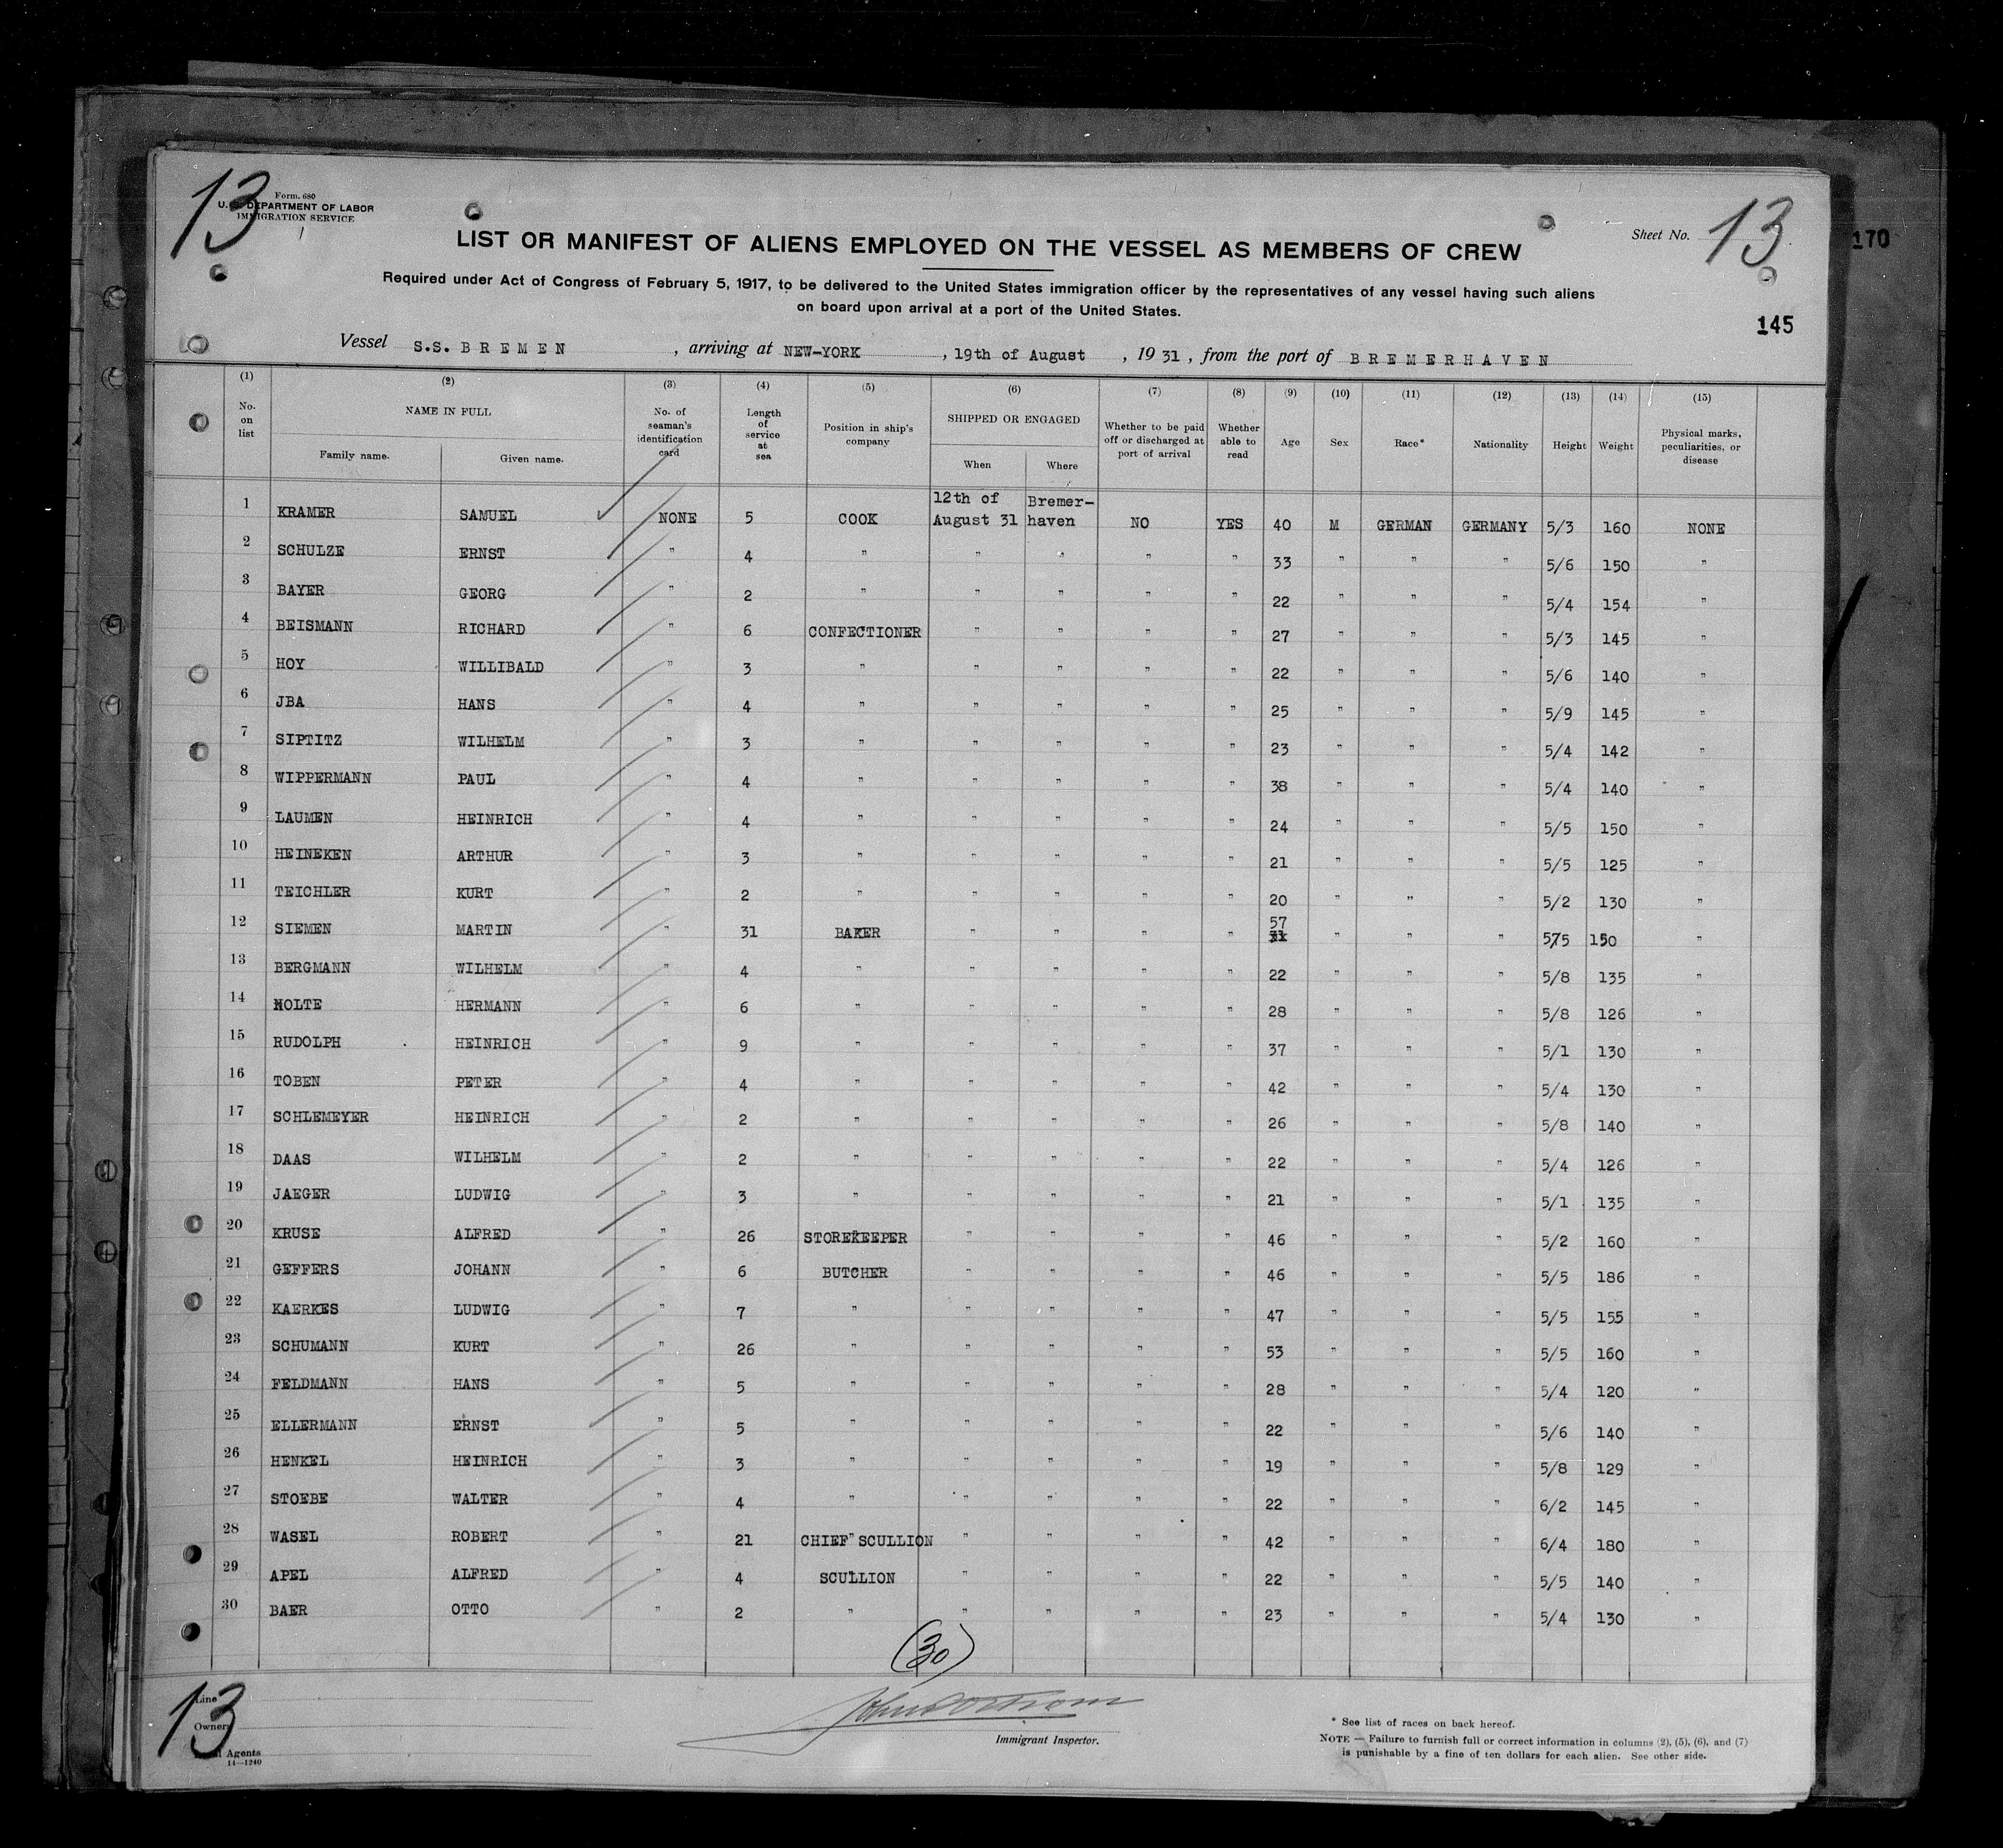 13
Form. 680
U. S. DEPARTMENT OF LABOR
IMMIGRATION SERVICE
Sheet No. 13
170
LIST OR MANIFEST OF ALIENS EMPLOYED ON THE VESSEL AS MEMBERS OF CREW
Required under Act of Congress of February 5, 1917, to be delivered to the United States immigration officer by the representatives of any vessel having such aliens
on board upon arrival at a port of the United States.
145
Vessel S.S. BREMEN , arriving at NEW-YORK , 19th of August , 19 31 , from the port of BREMERHAVEN
(1) (2) (3) (4) (5) (6) (7) (8) (9) (10) (11) (12) (13) (14) (15)
No. on list NAME IN FULL Family name. Given name. No. of seaman's identification card Length of service at sea Position in ship's company SHIPPED OR ENGAGED When Where Whether to be paid off or discharged at port of arrival Whether able to read Age Sex Race* Nationality Height Weight Physical marks, peculiarities, or disease
1 KRAMER SAMUEL NONE 5 COOK 12th of August 31 Bremer-haven NO YES 40 M GERMAN GERMANY 5/3 160 NONE
2 SCHULZE ERNST " 4 " " " " " 33 " " " 5/6 150 "
3 BAYER GEORG " 2 " " " " " 22 " " " 5/4 154 "
4 BEISMANN RICHARD " 6 CONFECTIONER " " " " 27 " " " 5/3 145 "
5 HOY WILLIBALD " 3 " " " " " 22 " " " 5/6 140 "
6 JBA HANS " 4 " " " " " 25 " " " 5/9 145 "
7 SIPTITZ WILHELM " 3 " " " " " 23 " " " 5/4 142 "
8 WIPPERMANN PAUL " 4 " " " " " 38 " " " 5/4 140 "
9 LAUMEN HEINRICH " 4 " " " " " 24 " " " 5/5 150 "
10 HEINEKEN ARTHUR " 3 " " " " " 21 " " " 5/5 125 "
11 TEICHLER KURT " 2 " " " " " 20 " " " 5/2 130 "
12 SIEMEN MARTIN " 31 BAKER " " " " 57 " " " 5/5 150 "
13 BERGMANN WILHELM " 4 " " " " " 22 " " " 5/8 135 "
14 NOLTE HERMANN " 6 " " " " " 28 " " " 5/8 126 "
15 RUDOLPH HEINRICH " 9 " " " " " 37 " " " 5/1 130 "
16 TOBEN PETER " 4 " " " " " 42 " " " 5/4 130 "
17 SCHLEMEYER HEINRICH " 2 " " " " " 26 " " " 5/8 140 "
18 DAAS WILHELM " 2 " " " " " 22 " " " 5/4 126 "
19 JAEGER LUDWIG " 3 " " " " " 21 " " " 5/1 135 "
20 KRUSE ALFRED " 26 STOREKEEPER " " " " 46 " " " 5/2 160 "
21 GEFFERS JOHANN " 6 BUTCHER " " " " 46 " " " 5/5 186 "
22 KAERKES LUDWIG " 7 " " " " " 47 " " " 5/5 155 "
23 SCHUMANN KURT " 26 " " " " " 53 " " " 5/5 160 "
24 FELDMANN HANS " 5 " " " " " 28 " " " 5/4 120 "
25 ELLERMANN ERNST " 5 " " " " " 22 " " " 5/6 140 "
26 HENKEL HEINRICH " 3 " " " " " 19 " " " 5/8 129 "
27 STOEBE WALTER " 4 " " " " " 22 " " " 6/2 145 "
28 WASEL ROBERT " 21 CHIEF" SCULLION " " " " 42 " " " 6/4 180 "
29 APEL ALFRED " 4 SCULLION " " " " 22 " " " 5/5 140 "
30 BAER OTTO " 2 " " " " " 23 " " " 5/4 130 "
(30)
13
Line
Owners
Agents
14—1240
Immigrant Inspector.
* See list of races on back hereof.
NOTE — Failure to furnish full or correct information in columns (2), (5), (6), and (7)
is punishable by a fine of ten dollars for each alien. See other side.